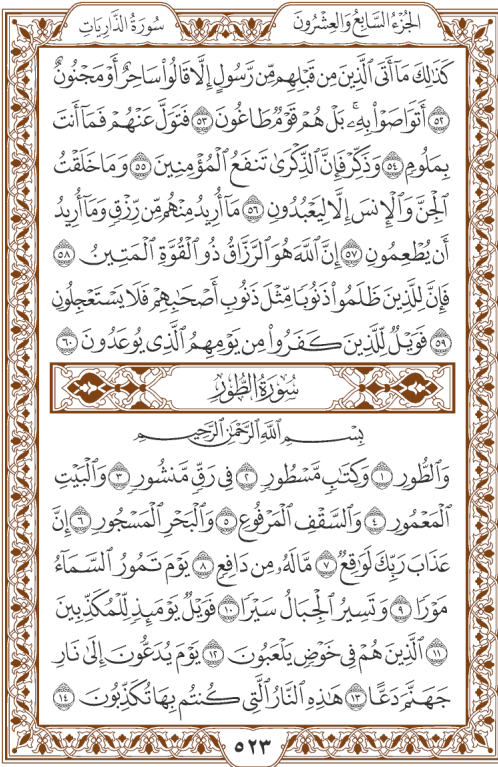 الجُزْءُ السَّابِعُ وَالعِشْرُونَ
سُورَةُ الذَّارِيَاتِ
كَذَٰلِكَ مَآ أَتَى ٱلَّذِينَ مِن قَبۡلِهِم مِّن رَّسُولٍ إِلَّا قَالُواْ سَاحِرٌ أَوۡ مَجۡنُونٌ
٥٢ أَتَوَاصَوۡاْ بِهِۦۚ بَلۡ هُمۡ قَوۡمٞ طَاغُونَ ٥٣ فَتَوَلَّ عَنۡهُمۡ فَمَآ أَنتَ
بِمَلُومٖ ٥٤ وَذَكِّرۡ فَإِنَّ ٱلذِّكۡرَىٰ تَنفَعُ ٱلۡمُؤۡمِنِينَ ٥٥ وَمَا خَلَقۡتُ
ٱلۡجِنَّ وَٱلۡإِنسَ إِلَّا لِيَعۡبُدُونِ ٥٦ مَآ أُرِيدُ مِنۡهُم مِّن رِّزۡقٖ وَمَآ أُرِيدُ
أَن يُطۡعِمُونِ ٥٧ إِنَّ ٱللَّهَ هُوَ ٱلرَّزَّاقُ ذُو ٱلۡقُوَّةِ ٱلۡمَتِينُ ٥٨
فَإِنَّ لِلَّذِينَ ظَلَمُواْ ذَنُوبٗا مِّثۡلَ ذَنُوبِ أَصۡحَٰبِهِمۡ فَلَا يَسۡتَعۡجِلُونِ
٥٩ فَوَيۡلٞ لِّلَّذِينَ كَفَرُواْ مِن يَوۡمِهِمُ ٱلَّذِي يُوعَدُونَ ٦٠
سُورَةُ الطُّورِ
بِسۡمِ ٱللَّهِ ٱلرَّحۡمَٰنِ ٱلرَّحِيمِ
وَٱلطُّورِ ١ وَكِتَٰبٖ مَّسۡطُورٖ ٢ فِي رَقّٖ مَّنشُورٖ ٣ وَٱلۡبَيۡتِ
ٱلۡمَعۡمُورِ ٤ وَٱلسَّقۡفِ ٱلۡمَرۡفُوعِ ٥ وَٱلۡبَحۡرِ ٱلۡمَسۡجُورِ ٦ إِنَّ
عَذَابَ رَبِّكَ لَوَٰقِعٞ ٧ مَّا لَهُۥ مِن دَافِعٖ ٨ يَوۡمَ تَمُورُ ٱلسَّمَآءُ
مَوۡرٗا ٩ وَتَسِيرُ ٱلۡجِبَالُ سَيۡرٗا ١٠ فَوَيۡلٞ يَوۡمَئِذٖ لِّلۡمُكَذِّبِينَ
١١ ٱلَّذِينَ هُمۡ فِي خَوۡضٖ يَلۡعَبُونَ ١٢ يَوۡمَ يُدَعُّونَ إِلَىٰ نَارِ
جَهَنَّمَ دَعًّا ١٣ هَٰذِهِ ٱلنَّارُ ٱلَّتِي كُنتُم بِهَا تُكَذِّبُونَ ١٤
٥٢٣